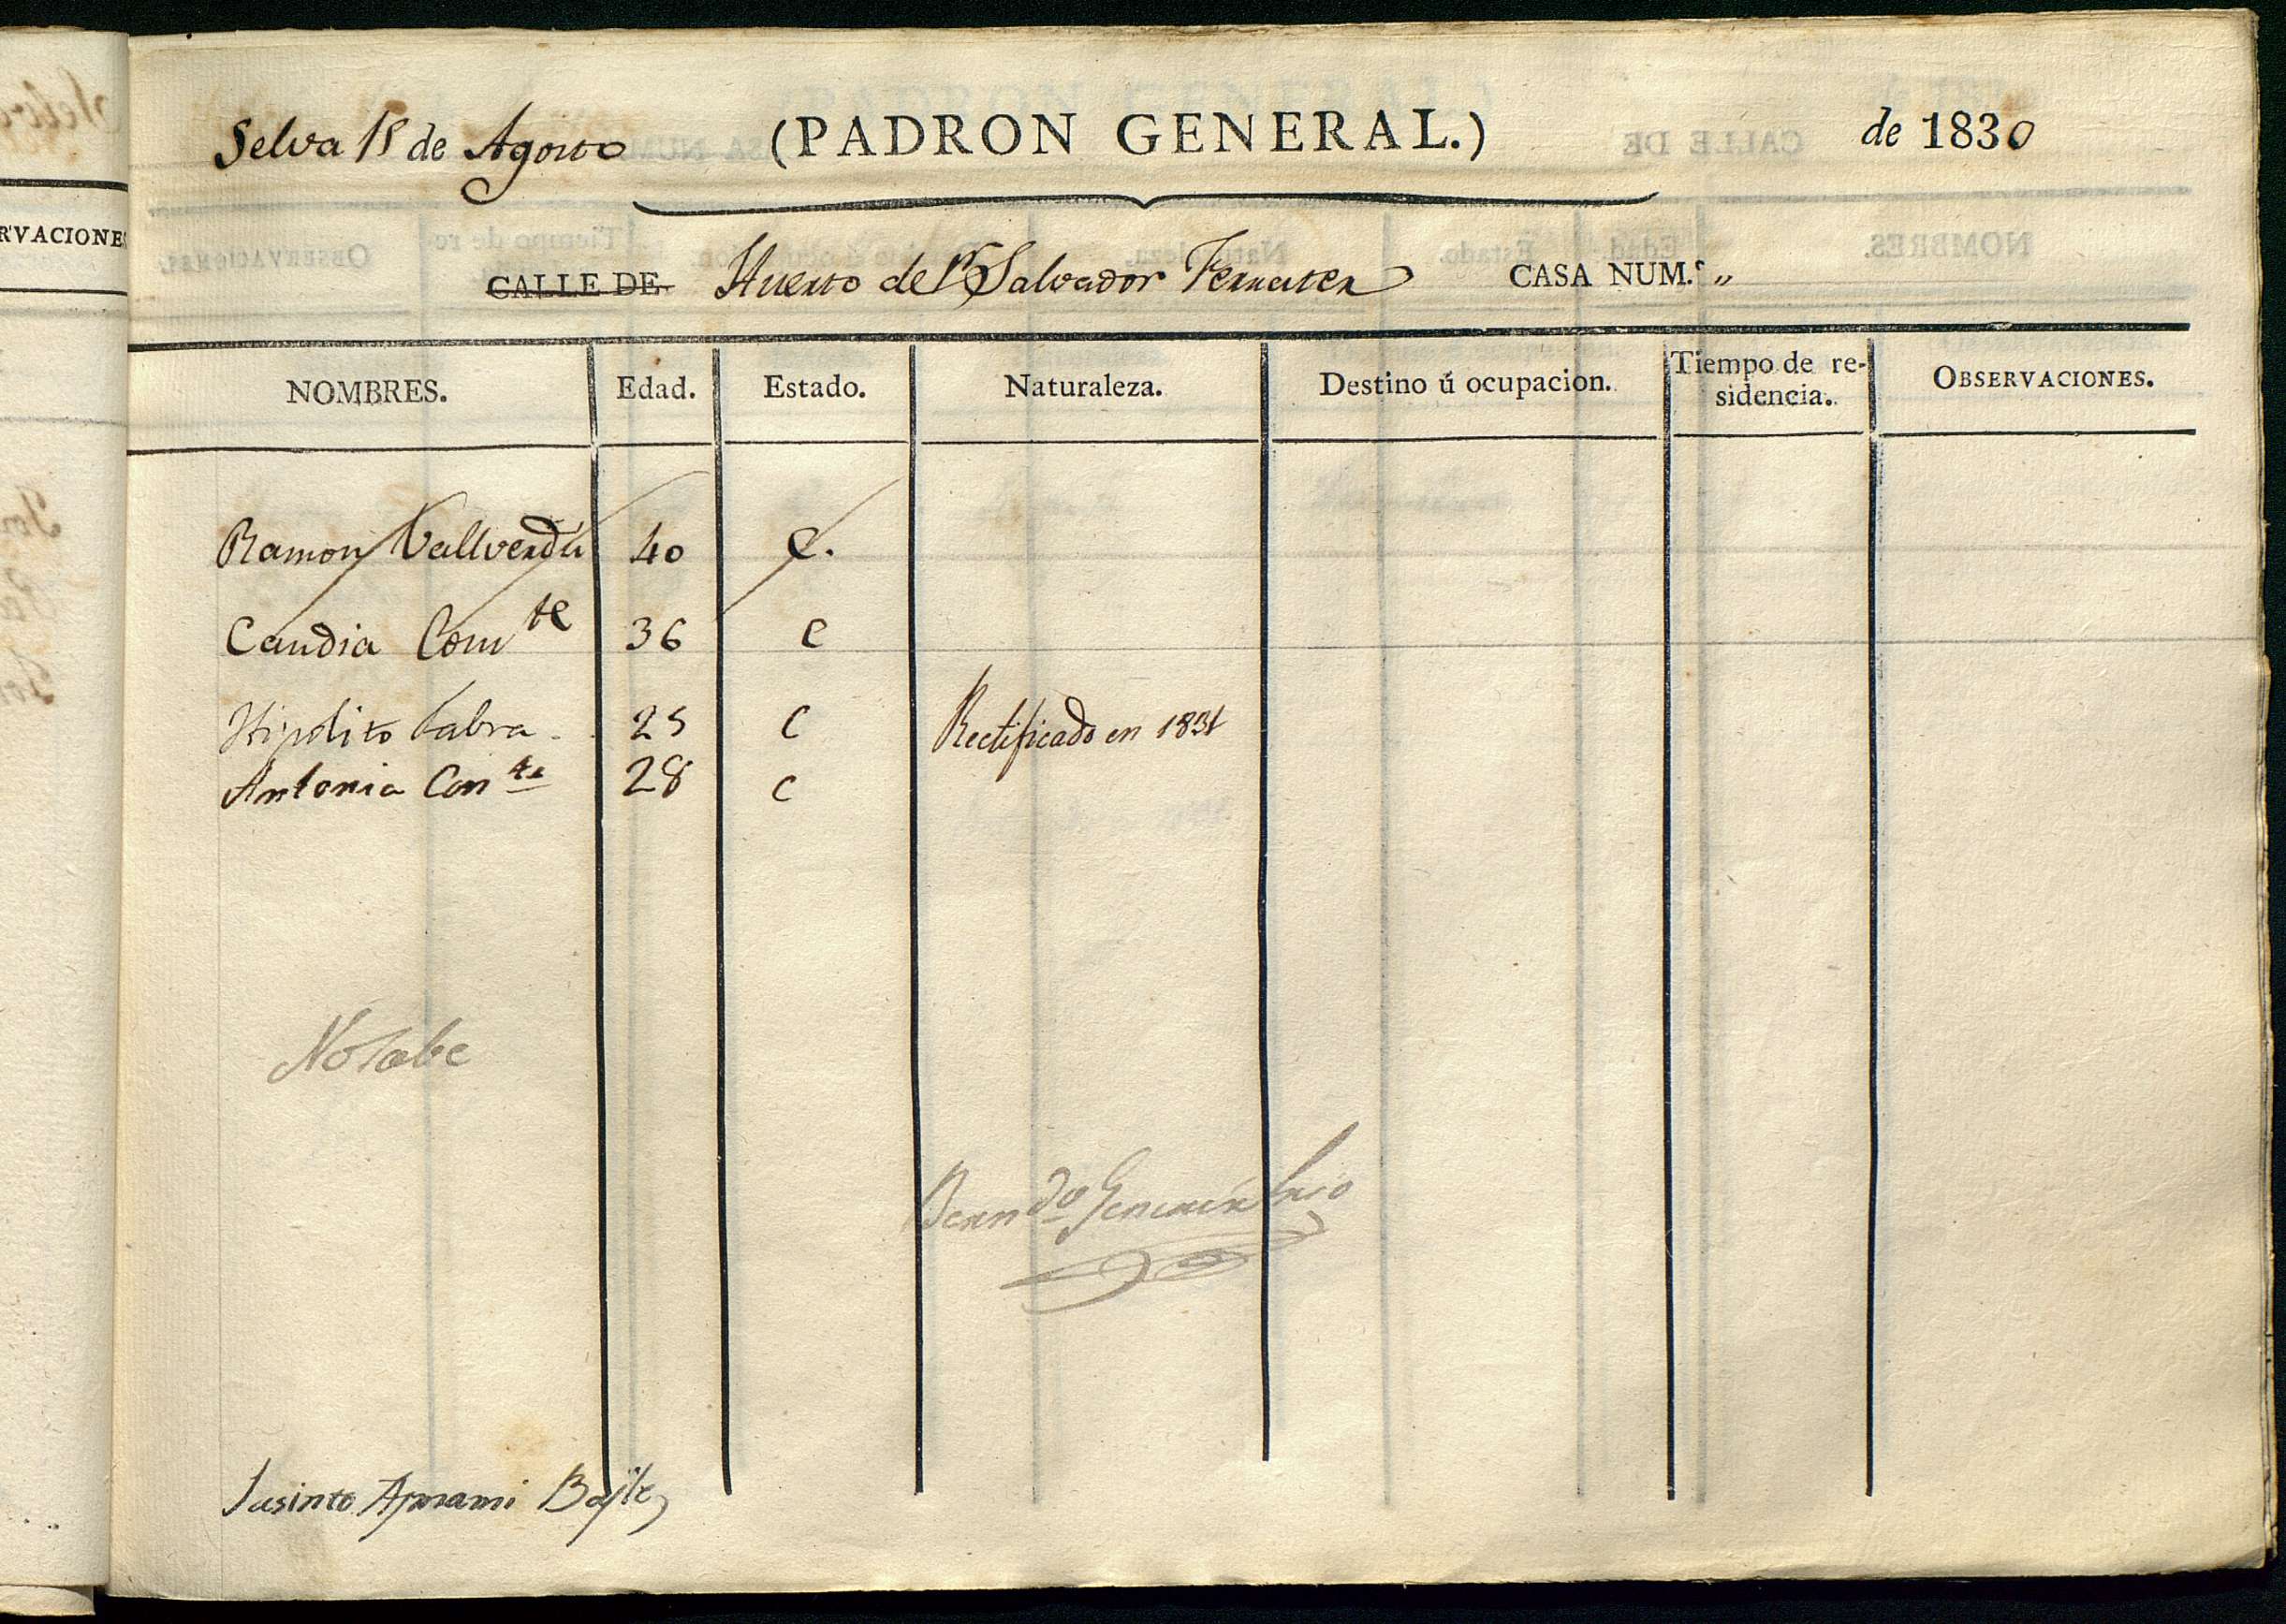 Selva 15 de Agosto (PADRON GENERAL.) de 1830
CALLE DE Huerto de Salvador CASA NUM.º „
NOMBRES. Edad. Estado. Naturaleza. Destino ú ocupacion. Tiempo de re-
sidencia. OBSERVACIONES.
Ramon Vallverdu 40 C.
Candia Conte 36 C
Hipolito Cabra 25 C Rectificado en 1831
Antonia Conte 28 C
No sabe
Jasinto Bayle
RVACIONES